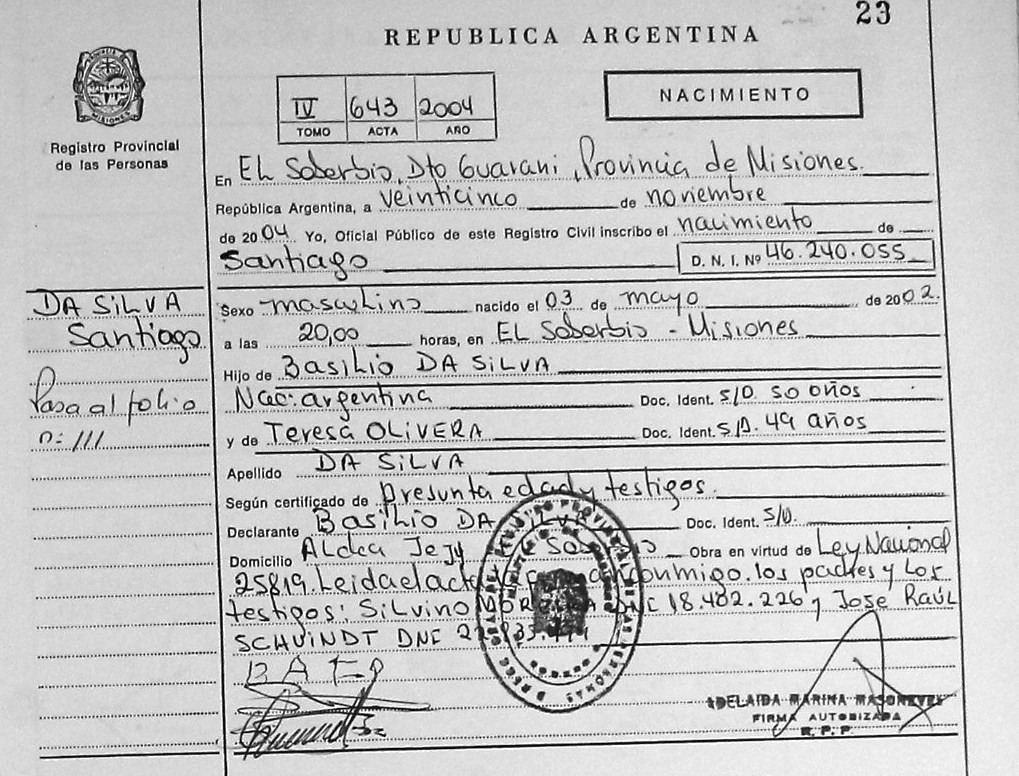 23
REPUBLICA ARGENTINA
PROVINCIA DE MISIONES
Registro Provincial
de las Personas
IV 643 2004
TOMO ACTA AÑO
NACIMIENTO
En EL Soberbio, Dto Guarani, Provincia de Misiones.
República Argentina, a veinticinco de noviembre
de 2004 Yo, Oficial Público de este Registro Civil inscribo el nacimiento de
Santiago D. N. I. Nº 46.240.055
DA SILVA
Santiago
Pasa al folio
n: 111
Sexo masculino nacido el 03 de mayo de 2002.
a las 20,00 horas, en EL Soberbio - Misiones
Hijo de Basilio DA SILVA
Nac: argentina Doc. Ident. S/D. 50 años
y de Teresa OLIVERA Doc. Ident. S/D. 49 años
Apellido DA SILVA
Según certificado de Presunta edad y testigos.
Declarante Basilio DA SILVA Doc. Ident. S/D.
Domicilio Aldea Jejy Obra en virtud de Ley Nacional
25819. Leida el acta conmigo. los padres y Los
testigos: Silvino DNI 18.402.226 y Jose Raúl
SCHUINDT DNI
ADELAIDA MARINA
FIRMA AUTORIZADA
R. P. P.